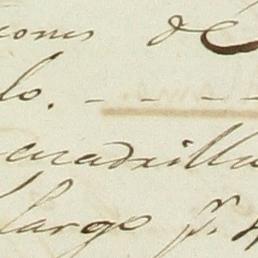 iones de
lo. - - - -
quadrilla
largo pr. 4